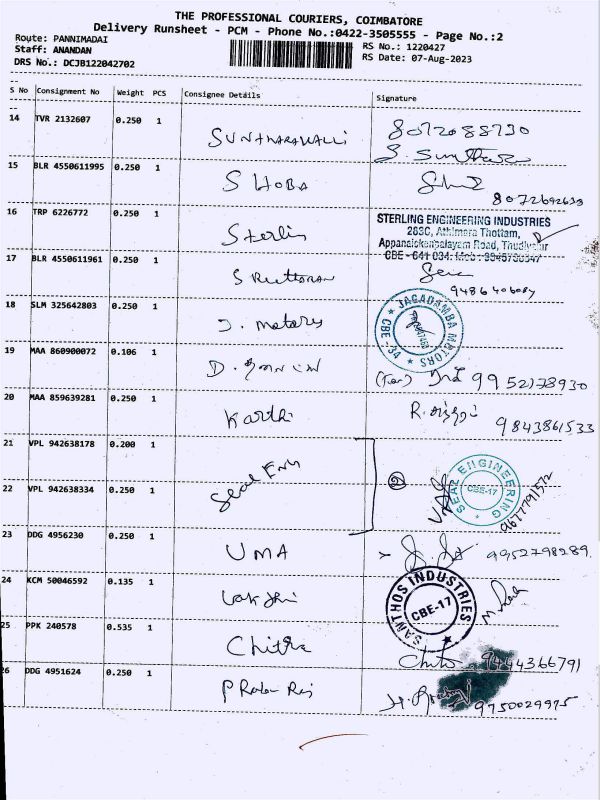 THE PROFESSIONAL COURIERS, COIMBATORE
Delivery Runsheet - PCM - Phone No.:0422-3505555 - Page No.:2
Route: PANNIMADAI
Staff: ANANDAN
DRS No.: DCJB122042702
RS No.: 1220427
RS Date: 07-Aug-2023
S No Consignment No Weight PCS Consignee Details Signature
14 TVR 2132607 0.250 1 8072088730
15 BLR 4550611995 0.250 1 SHOBA
8072692633
16 TRP 6226772 0.250 1 Sterlin
STERLING ENGINEERING INDUSTRIES
283C, Athimara Thottam,
Appanaickenpalayam Road, Thudiyalur
CBE - 641 034.
17 BLR 4550611961 0.250 1
18 SLM 325642803 0.250 1 J. Motors
JAGADAMBA MOTORS
CBE-34
19 MAA 860900072 0.106 1 D.
(For) 9952178930
20 MAA 859639281 0.250 1 Karthi
R. 9843861533
21 VPL 942638178 0.200 1 Seal Eng
22 VPL 942638334 0.250 1
②
SEAL ENGINEERING
CBE-17
9677791572
23 DDG 4956230 0.250 1 UMA 9952798289
24 KCM 50046592 0.135 1
SANTHOS INDUSTRIES
CBE-17
25 PPK 240578 0.535 1 Chitra
9444366791
26 DDG 4951624 0.250 1
9750029975